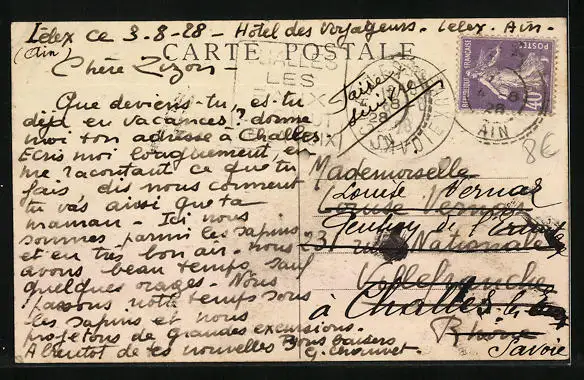 Lélex ce 3-8-28 - Hôtel des Voyageurs. Lélex. Ain.
(Ain)
CARTE POSTALE
Chère Zizou -
Que deviens-tu, es-tu
déjà en vacances? donne
moi ton adresse à Challes
Ecris moi longuement, en
me racontant ce que tu
fais dis nous comment
tu vas ainsi que ta
maman. Ici nous
sommes parmi les sapins
et en très bon air. nous
avons beau temps sauf
quelques orages. Nous
passons notre temps sous
les sapins et nous
projetons de grandes excursions.
A bientôt de tes nouvelles Bons baisers
G. Chauvet.
CHALLES
LES
EAUX
Faisé
suivre
POSTES
REPUBLIQUE FRANÇAISE
40c
AIN
8€
Mademoiselle
Louise Vernar
Louise Vernar
23 rue Nationale
Villefranche
à Challes les
Rhône
Savoie